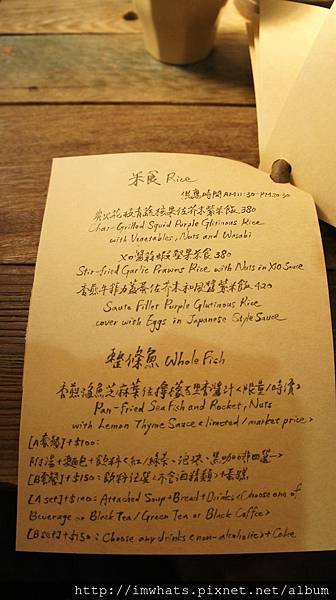 米食 Rice
供應時間 AM11:30-PM20:30
炭火花枝青蔬核果佐芥末紫米飯 380
Char-Grilled Squid Purple Glutinous Rice
with Vegetables, Nuts and Wasabi
XO醬蒜蝦堅果米食 380
Stir-fried Garlic Prawns Rice with Nuts in XO Sauce
香煎牛菲力蓋蛋佐芥末和風醬紫米飯 420
Saute Fillet Purple Glutinous Rice
cover with Eggs in Japanese Style Sauce
整條魚 Whole Fish
香煎海魚芝麻葉佐檸檬百里香醬汁<限量/時價>
Pan-Fried Sea Fish and Rocket, Nuts
with Lemon Thyme Sauce <limited/market price>
[A套餐]+$100:
附湯+麵包+飲料<紅/綠茶、黑咖啡四選一>
[B套餐]+$150: 飲料任選<不含酒精類>+蛋糕
[A set]+$100: Attached Soup+Bread+Drinks<Choose one of
Beverage - Black Tea/Green Tea or Black Coffee>
[B set]+$150: Choose any drinks <non-alcoholic>+Cake
http://imwhats.pixnet.net/album